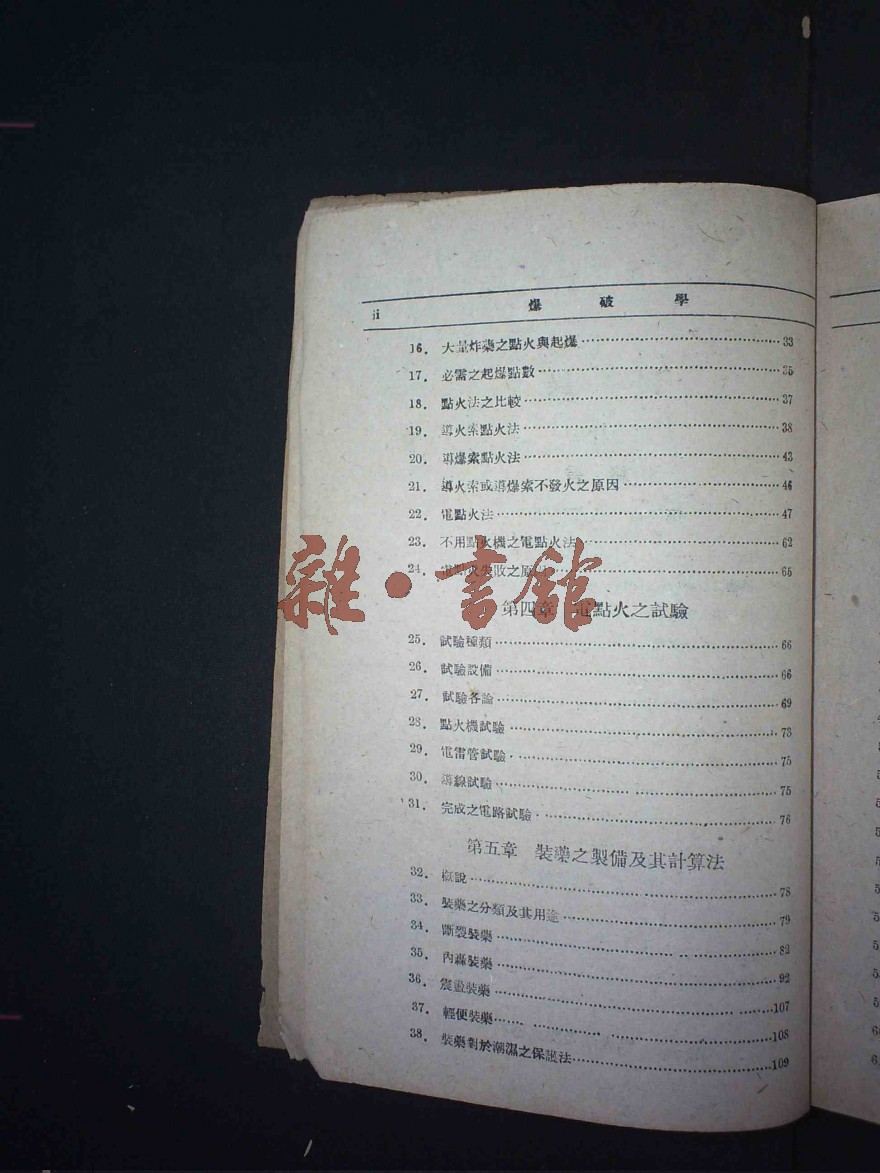 ii 爆破學
16. 大量炸藥之點火與起爆 33
17. 必需之起爆點數 35
18. 點火法之比較 37
19. 導火索點火法 38
20. 導爆索點火法 43
21. 導火索或導爆索不發火之原因 46
22. 電點火法 47
23. 不用點火機之電點火法 62
24. 電點火失敗之原因 65
雜·書館
第四章 電點火之試驗
25. 試驗種類 66
26. 試驗設備 66
27. 試驗各論 69
28. 點火機試驗 73
29. 電雷管試驗 75
30. 導線試驗 75
31. 完成之電路試驗 76
第五章 裝藥之製備及其計算法
32. 概說 78
33. 裝藥之分類及其用途 79
34. 斷裂裝藥 82
35. 內轟裝藥 92
36. 震盪裝藥 107
37. 輕便裝藥 108
38. 裝藥對於潮濕之保護法 109